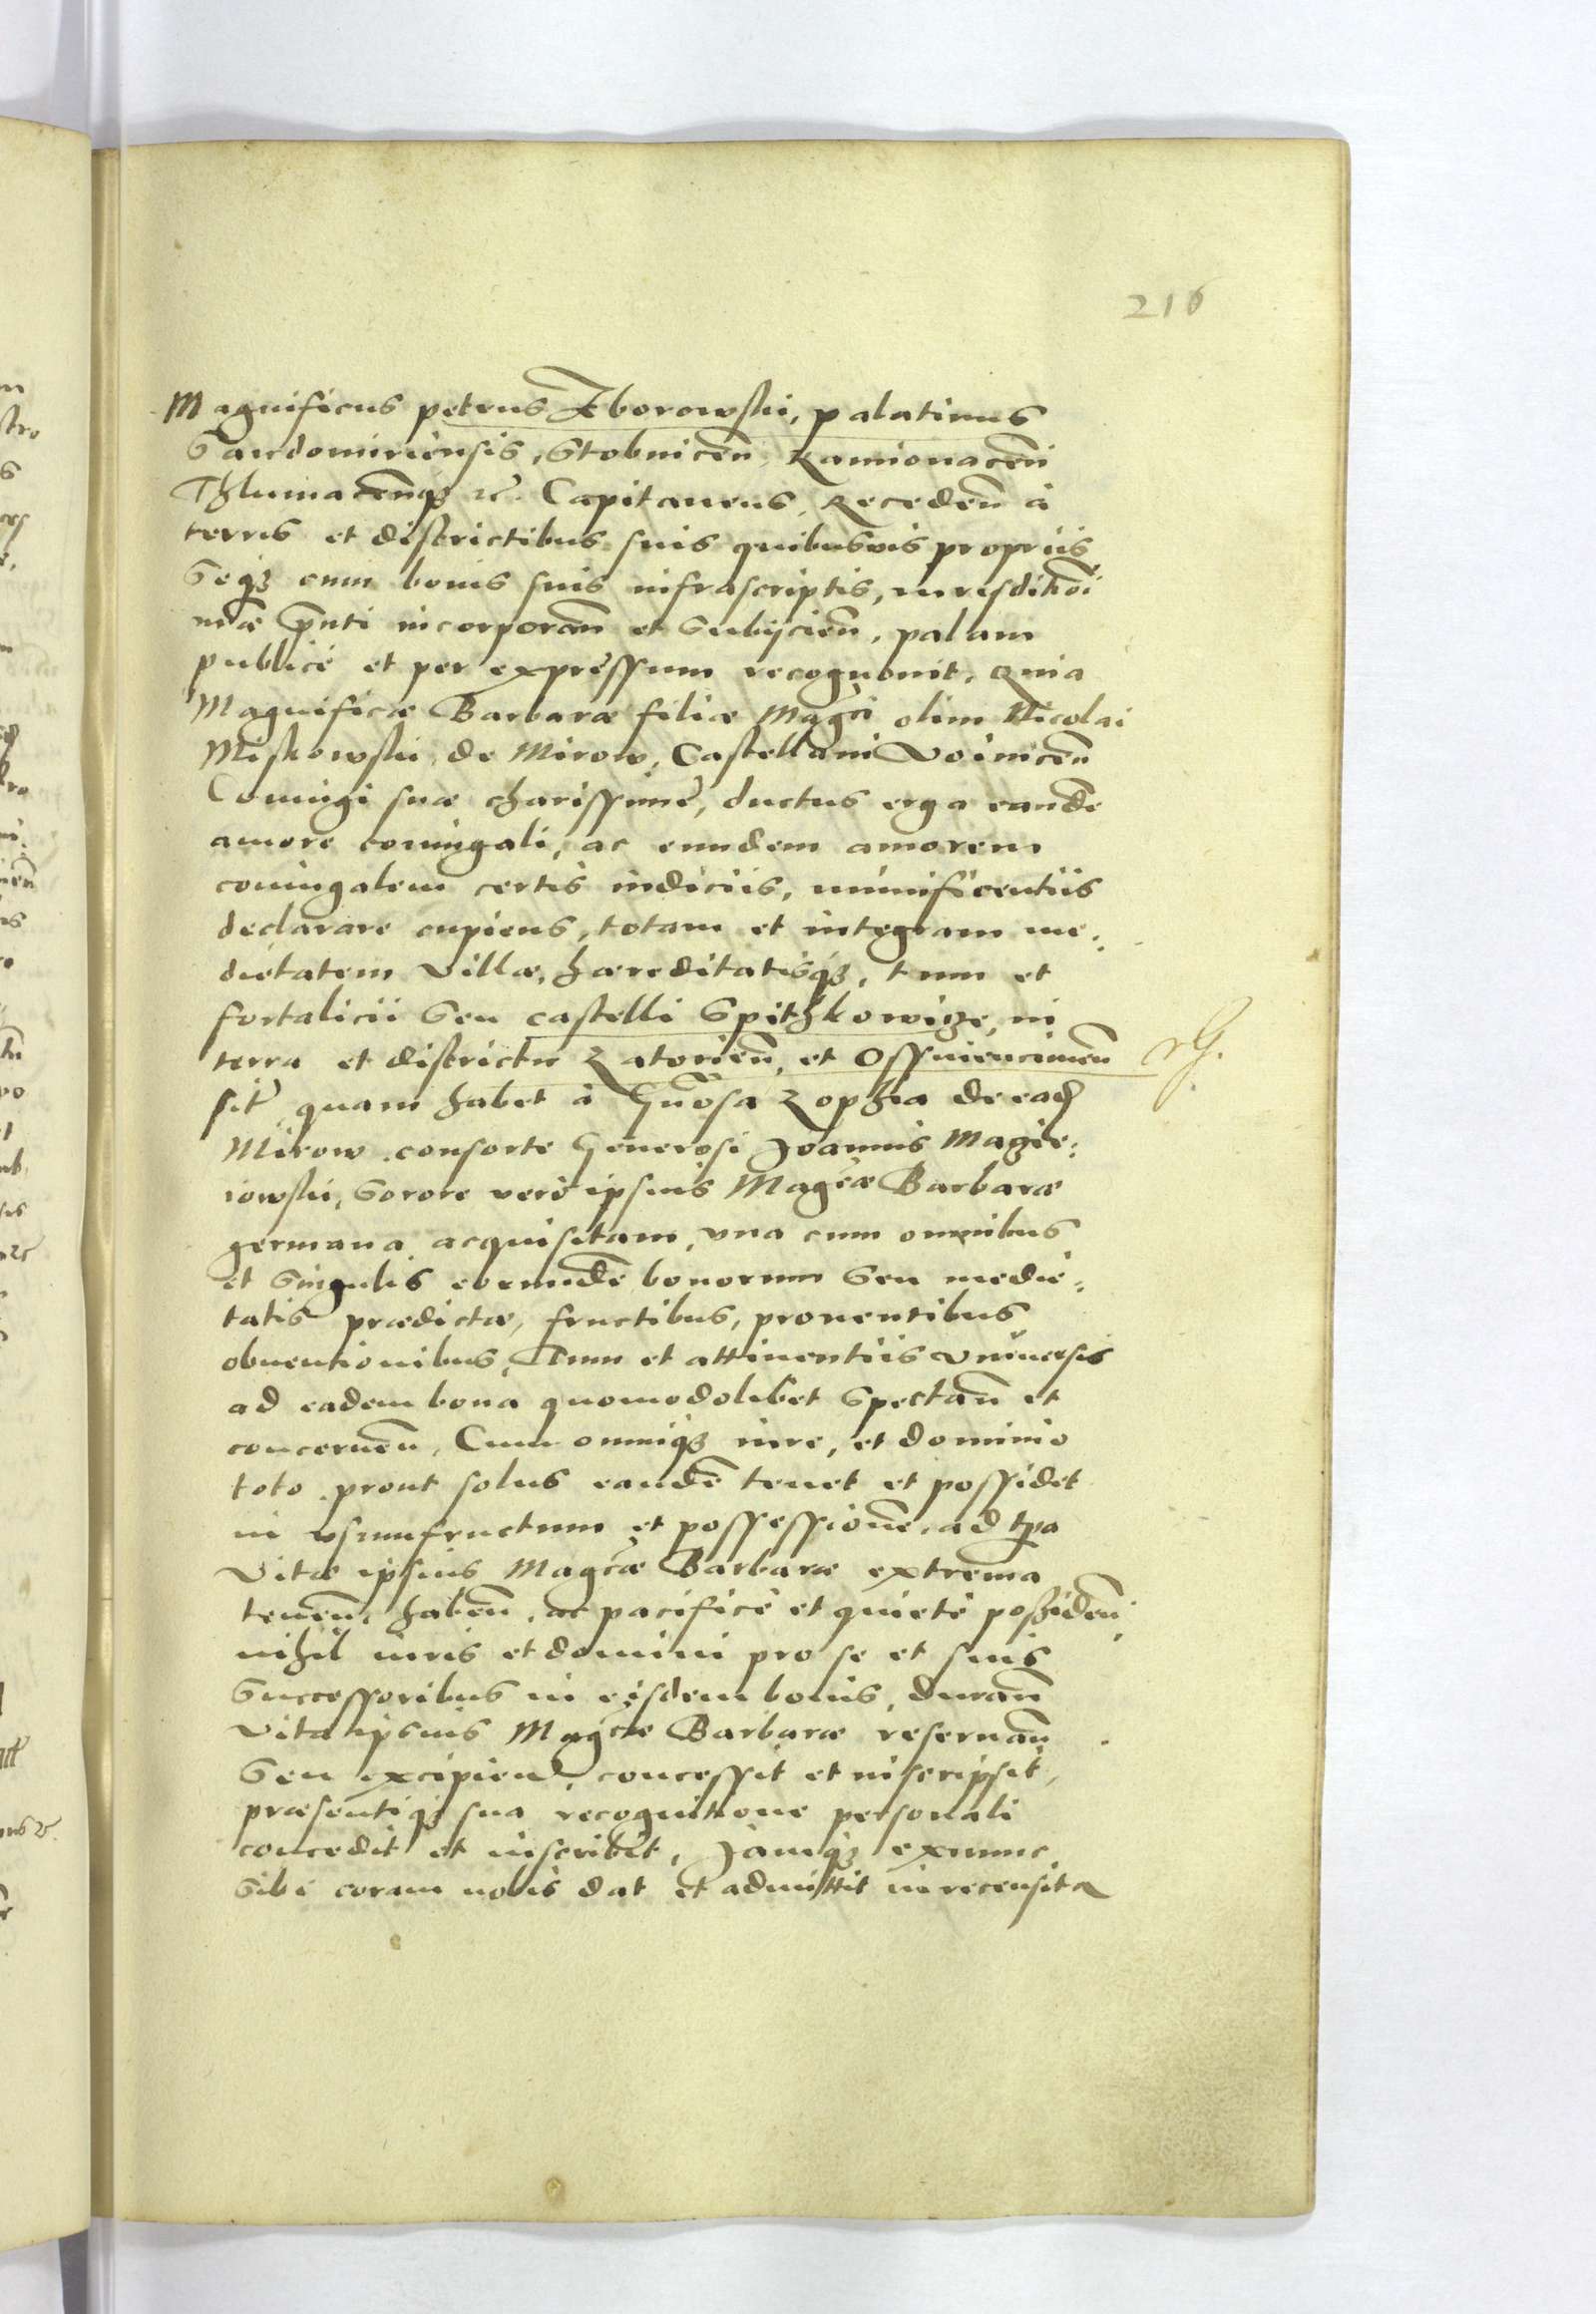 216
Magnificus petrus Zborowski, palatinus
Sandomiriensis, Stobnicen̄, Kamionacen̄
Thlumacen̄qȝ etc̄. Capitaneus, Receden̄ à
terris et districtibus suis quibusvis propriis
Seqȝ cum bonis suis infrascriptis, iurisditiōi
māe p̄nti incorporan̄ et Subijcien̄, palam
publicè et per expressum recognouit, Quia
Magnificæ Barbaræ filiæ Mag̃ci olim Nicolai
Miskowski, de Mirow, Castellani Voinicen̄
Coniugi suæ charissimę, ductus erga eandē
amore coniugali, ac eundem amorem
coniugalem certis indiciis, munificentiis
declarare cupiens, totam et integram me:
dietatem Villæ, hæreditatisqȝ, tum et
fortalicii Seu castelli Spithkowicze, in
terra et districtu Zatorien̄, et Osswiencimen̄
sit̄ quam habet à Gn̄osa Zophia de eadē
Mirow consorte Generosi Joannis Magie:
rowski, Sorore verò ipsius Mag̃cæ Barbaræ
germana acquisitam, vna cum omnibus
et Singulis eorundē bonorum Seu medie:
tatis prædictæ, fructibus, prouentibus
obuentionibus, Tum et attinentiis vniuersis
ad eadem bona quomodolibet Spectan̄ et
concernen̄, Cum omniqȝ iure, et dominio
toto prout solus eandē tenet et possidet
in vsumfructum et possessionē, ad tp̄a
Vitæ ipsius Mag̃cæ Barbaræ extrema
tenen̄, haben̄, ac pacificè et quietè possiden̄,
nihil iuris et domini pro se et suis
Successoribus in eisdem bonis, duran̄
Vita ipsius Mag̃cæ Barbaræ reseruan̄
Seu excipien̄, concessit et inscripsit,
præsentiqȝ sua recognitione personali
concedit et inscribit, Jamqȝ exnunc
Sibi coram nobis dat et admittit in recensita